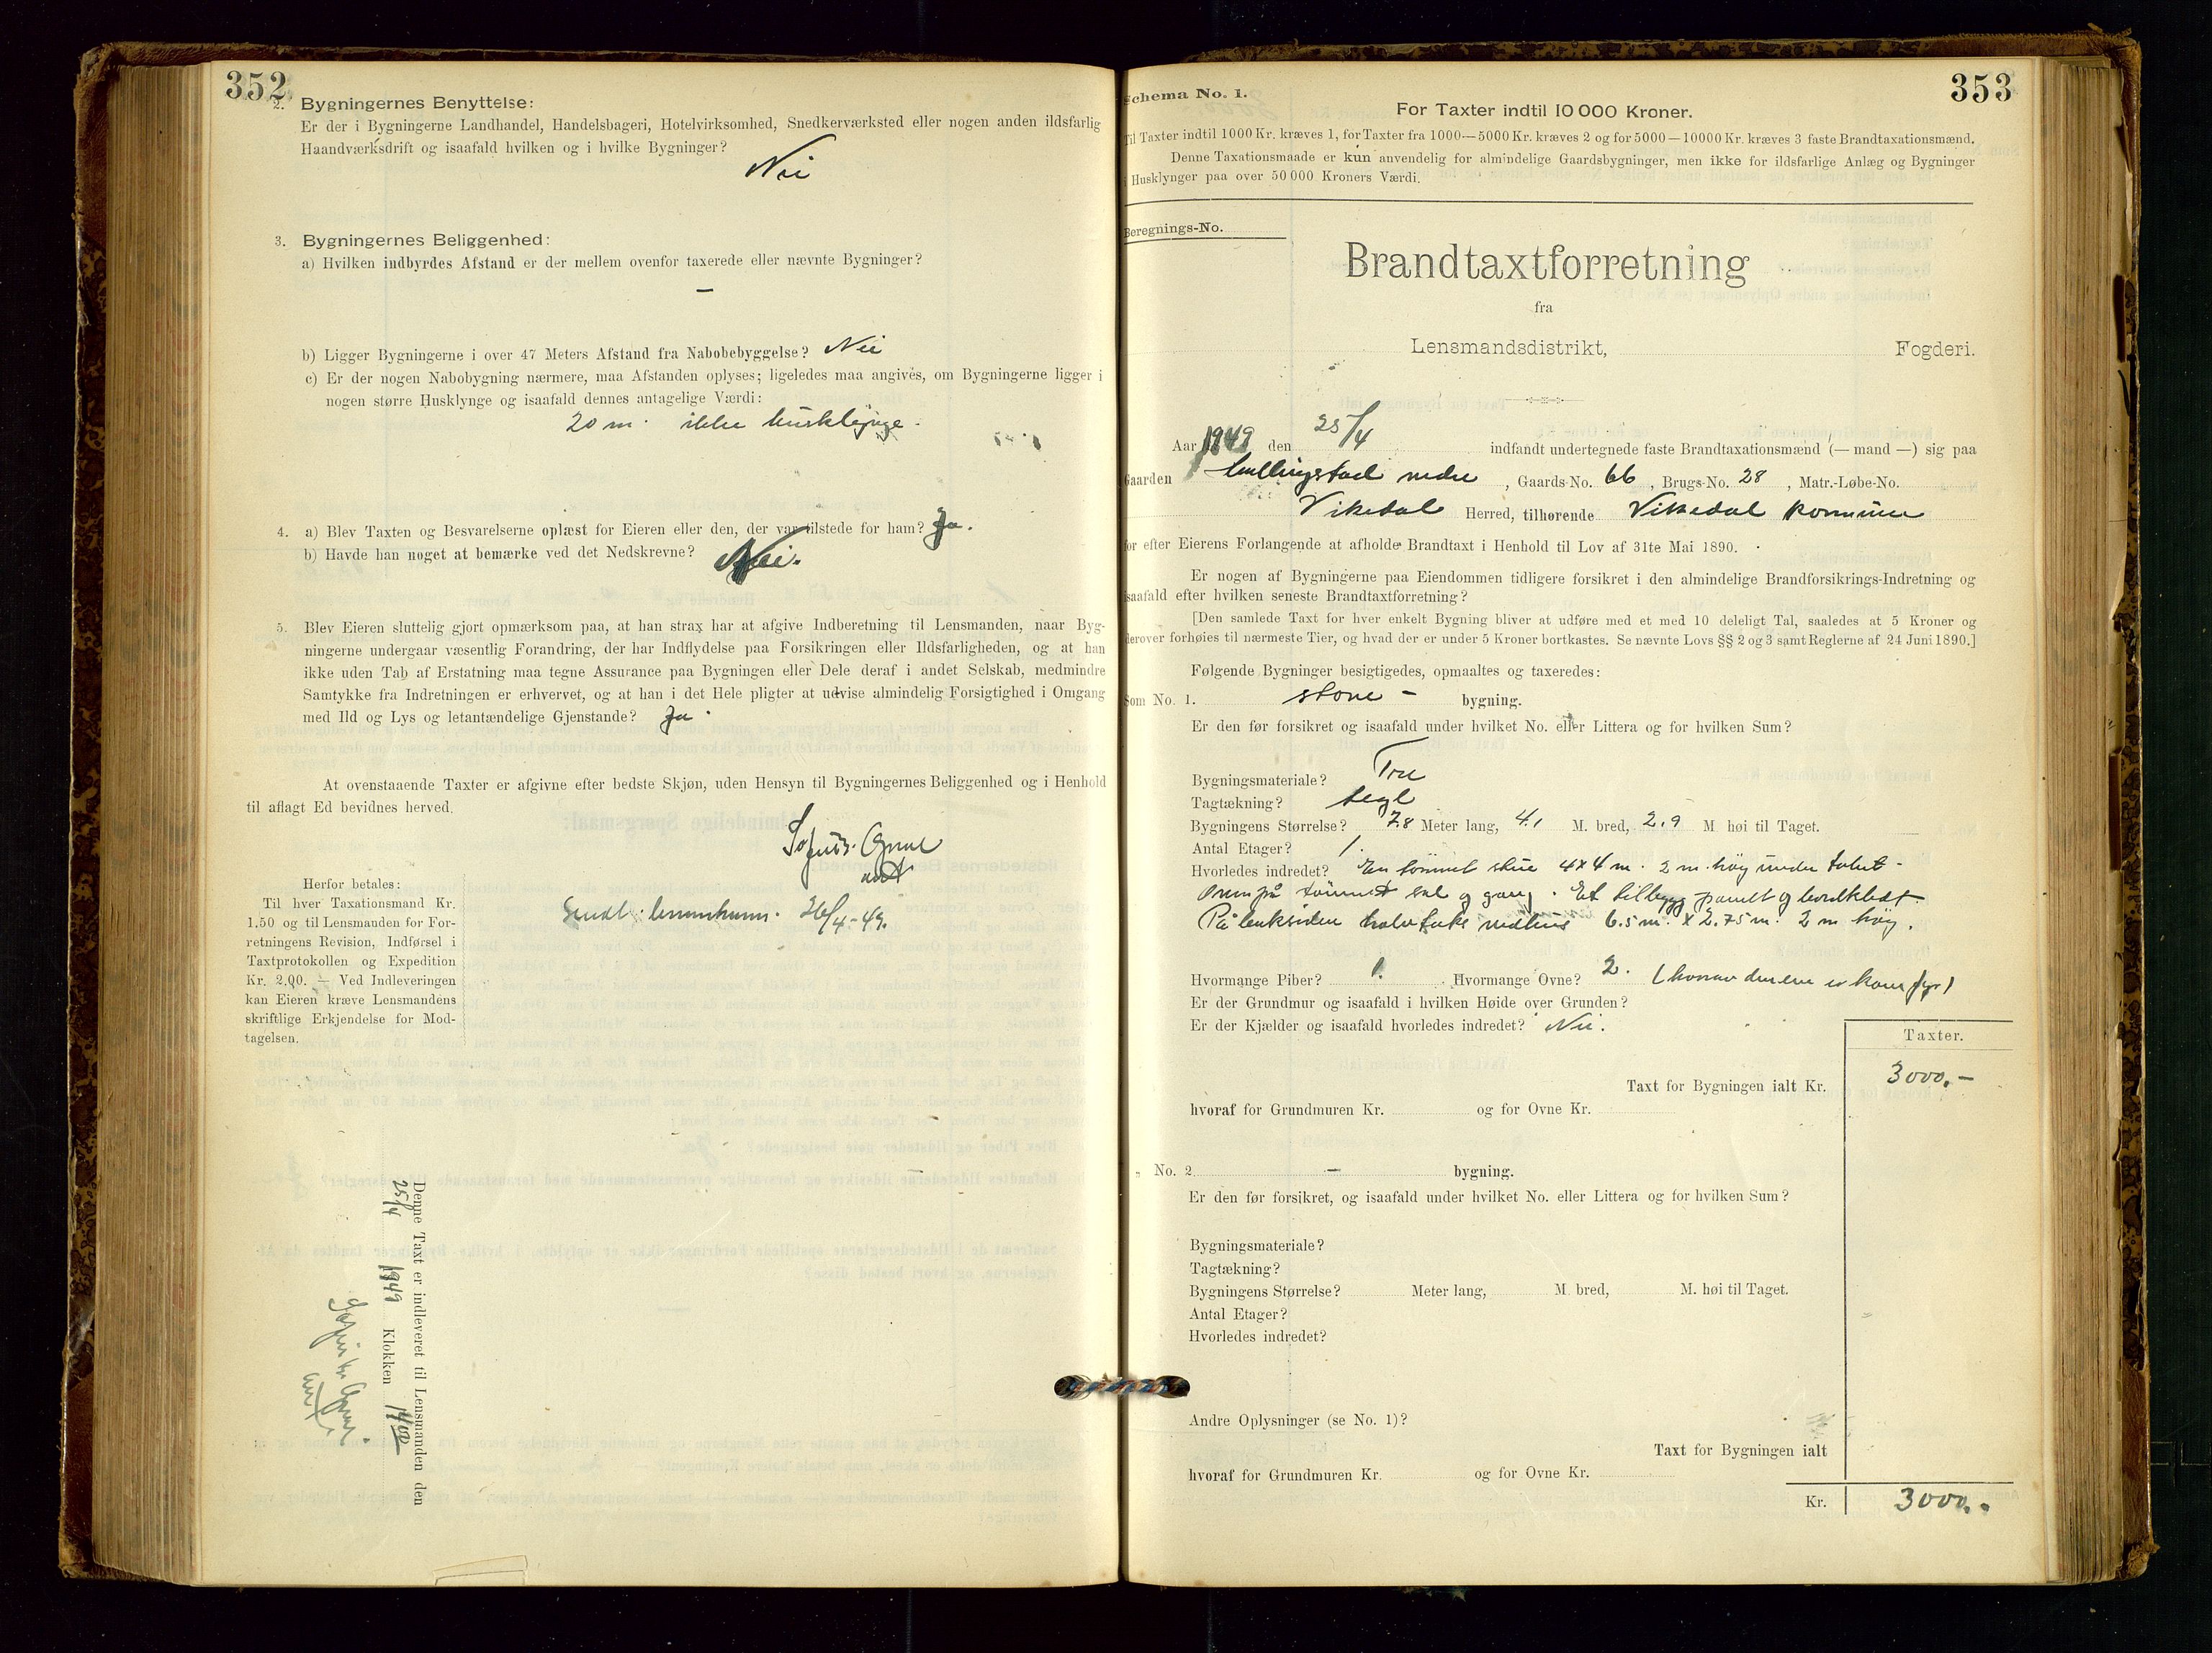 352
2. Bygningernes Benyttelse:
Er der i Bygningerne Landhandel, Handelsbageri, Hotelvirksomhed, Snedkerværksted eller nogen anden ildsfarlig
Haandværksdrift og isaafald hvilken og i hvilke Bygninger?
Nei
3. Bygningernes Beliggenhed:
a) Hvilken indbyrdes Afstand er der mellem ovenfor taxerede eller nævnte Bygninger?
–
b) Ligger Bygningerne i over 47 Meters Afstand fra Nabobebyggelse? Nei
c) Er der nogen Nabobygning nærmere, maa Afstanden oplyses; ligeledes maa angives, om Bygningerne ligger i
nogen større Husklynge og isaafald dennes antagelige Værdi:
20 m. ikke husklynge.
4. a) Blev Taxten og Besvarelserne oplæst for Eieren eller den, der var tilstede for ham? Ja.
b) Havde han noget at bemærke ved det Nedskrevne? Nei.
5. Blev Eieren sluttelig gjort opmærksom paa, at han strax har at afgive Indberetning til Lensmanden, naar Byg-
ningerne undergaar væsentlig Forandring, der har Indflydelse paa Forsikringen eller Ildsfarligheden, og at han
ikke uden Tab af Erstatning maa tegne Assurance paa Bygningen eller Dele deraf i andet Selskab, medmindre
Samtykke fra Indretningen er erhvervet, og at han i det Hele pligter at udvise almindelig Forsigtighed i Omgang
med Ild og Lys og letantændelige Gjenstande? Ja.
At ovenstaaende Taxter er afgivne efter bedste Skjøn, uden Hensyn til Bygningernes Beliggenhed og i Henhold
til aflagt Ed bevidnes herved.
Herfor betales:
Til hver Taxationsmand Kr.
1.50 og til Lensmanden for For-
retningens Revision, Indførsel i
Taxtprotokollen og Expedition
Kr. 2.00. — Ved Indleveringen
kan Eieren kræve Lensmandens
skriftlige Erkjendelse for Mod-
tagelsen.
Sendt 26/4-49.
Denne Taxt er indleveret til Lensmanden den
25/4 1949 Klokken 1400
353
Schema No. 1.
For Taxter indtil 10 000 Kroner.
Til Taxter indtil 1000 Kr. kræves 1, for Taxter fra 1000—5000 Kr. kræves 2 og for 5000—10000 Kr. kræves 3 faste Brandtaxationsmænd.
Denne Taxationsmaade er kun anvendelig for almindelige Gaardsbygninger, men ikke for ildsfarlige Anlæg og Bygninger
i Husklynger paa over 50 000 Kroners Værdi.
Beregnings-No.
Brandtaxtforretning
fra
Lensmandsdistrikt, Fogderi.
Aar 1949 den 25/4 indfandt undertegnede faste Brandtaxationsmænd (— mand —) sig paa
Gaarden nedre, Gaards-No. 66, Brugs-No. 28, Matr.-Løbe-No.
Vikedal Herred, tilhørende Vikedal kommune
for efter Eierens Forlangende at afholde Brandtaxt i Henhold til Lov af 31te Mai 1890.
Er nogen af Bygningerne paa Eiendommen tidligere forsikret i den almindelige Brandforsikrings-Indretning og
isaafald efter hvilken seneste Brandtaxtforretning?
[Den samlede Taxt for hver enkelt Bygning bliver at udføre med et med 10 deleligt Tal, saaledes at 5 Kroner og
derover forhøies til nærmeste Tier, og hvad der er under 5 Kroner bortkastes. Se nævnte Lovs §§ 2 og 3 samt Reglerne af 24 Juni 1890.]
Følgende Bygninger besigtigedes, opmaaltes og taxeredes:
Som No. 1. stove – bygning.
Er den før forsikret og isaafald under hvilket No. eller Littera og for hvilken Sum?
Bygningsmateriale? Tre
Tagtækning? tegl
Bygningens Størrelse? 7.8 Meter lang, 4.1 M. bred, 2.9 M. høi til Taget.
Antal Etager? 1.
Hvorledes indredet? En tømmet stue 4x4 m. 2 m. høy under
tømmet sval og gang. Et tilbygg panelt og bordkledt
På 6.5 m. x 2.75 m. 2 m høy.
Hvormange Piber? 1. Hvormange Ovne? 2. (hvorav den ene er komfyr)
Er der Grundmur og isaafald i hvilken Høide over Grunden?
Er der Kjælder og isaafald hvorledes indredet? Nei.
Taxter.
Taxt for Bygningen ialt Kr. 3000.–
hvoraf for Grundmuren Kr. og for Ovne Kr.
„ No. 2 – bygning.
Er den før forsikret, og isaafald under hvilket No. eller Littera og for hvilken Sum?
Bygningsmateriale?
Tagtækning?
Bygningens Størrelse? Meter lang, M. bred, M. høi til Taget.
Antal Etager?
Hvorledes indredet?
Andre Oplysninger (se No. 1)?
Taxt for Bygningen ialt
hvoraf for Grundmuren Kr. og for Ovne Kr.
Kr. 3000.-